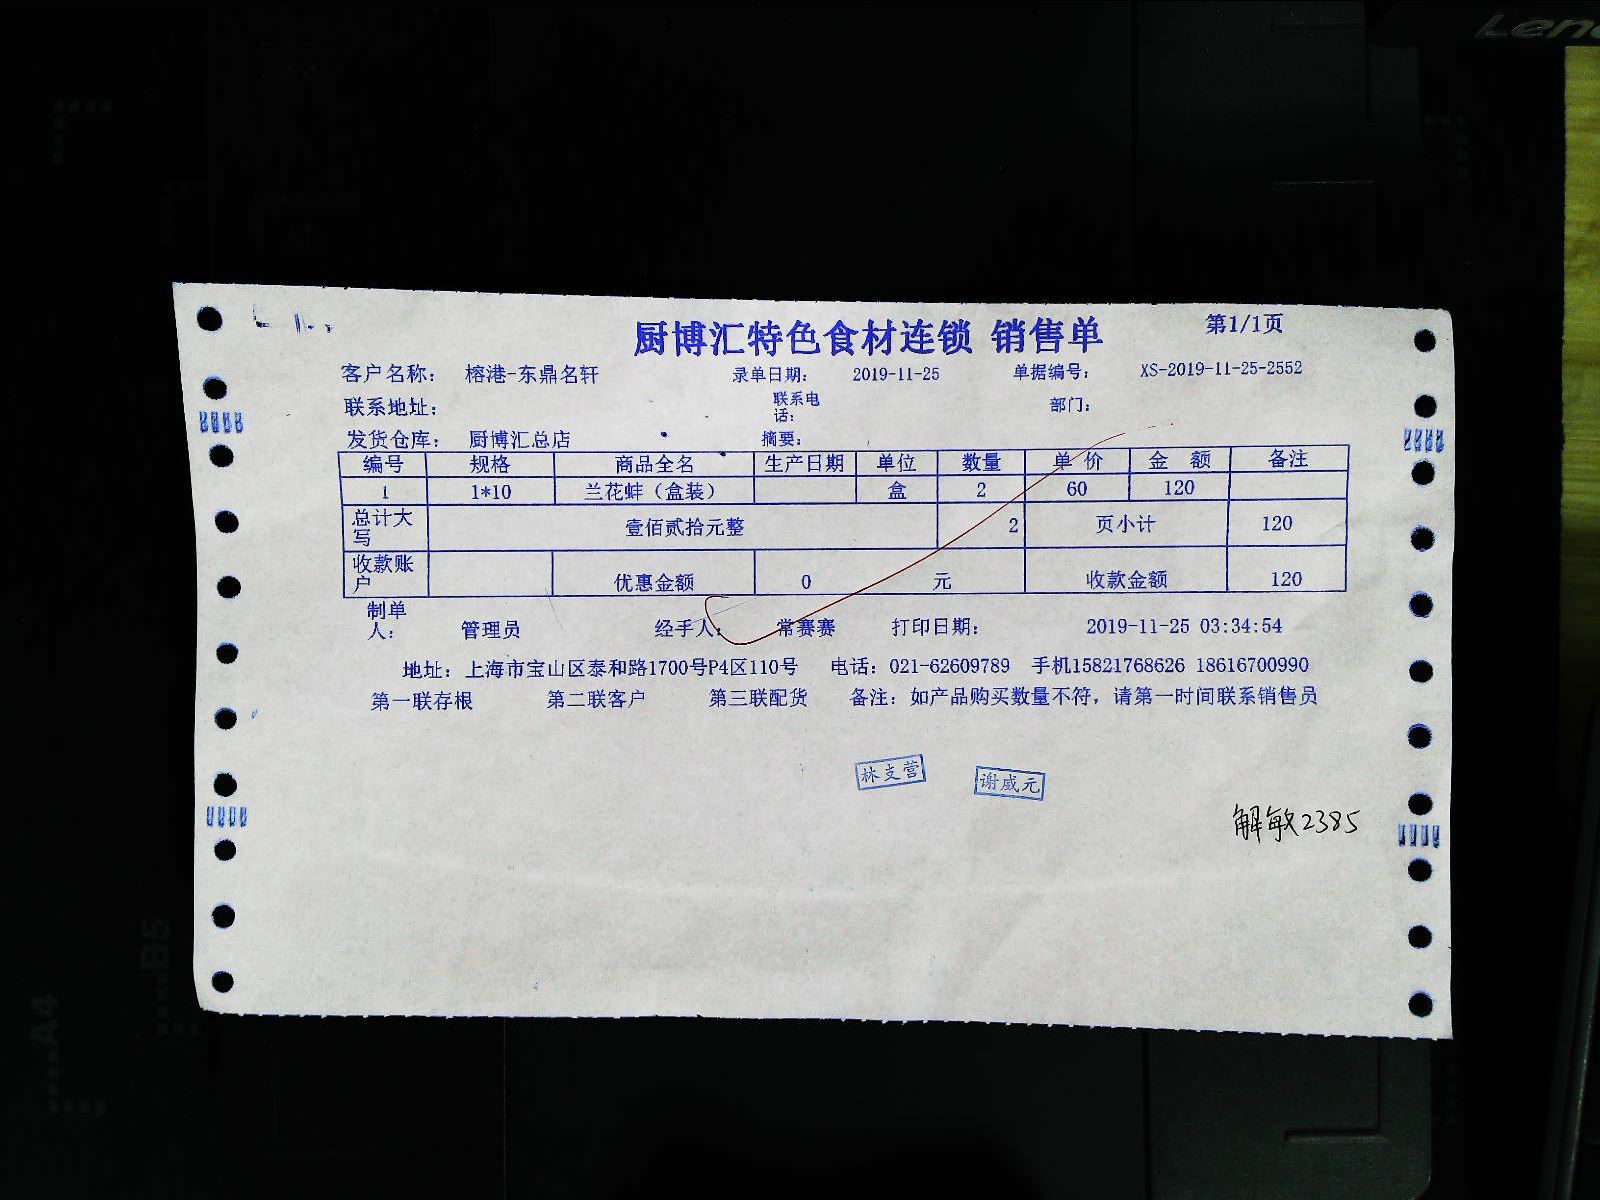 厨博汇特色食材连锁 销售单 第1/1页
客户名称: 榕港-东鼎名轩 录单日期: 2019-11-25 单据编号: XS-2019-11-25-2552
联系地址: 联系电话: 部门:
发货仓库: 厨博汇总店 摘要:
编号 规格 商品全名 生产日期 单位 数量 单 价 金 额 备注
1 1*10 兰花蚌（盒装） 盒 2 60 120
总计大写 壹佰贰拾元整 2 页小计 120
收款账户 优惠金额 0 元 收款金额 120
制单人: 管理员 经手人: 常赛赛 打印日期: 2019-11-25 03:34:54
地址: 上海市宝山区泰和路1700号P4区110号 电话: 021-62609789 手机15821768626 18616700990
第一联存根 第二联客户 第三联配货 备注: 如产品购买数量不符，请第一时间联系销售员
林支营 谢威元
解敏2385
B5
A4